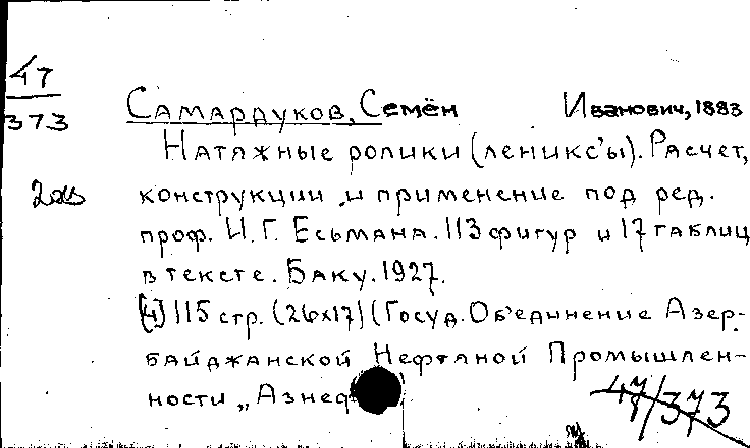 47
373
Самардуков, Семён Иванович, 1883
Натяжные ролики (леникс'ы). Расчет,
конструкции и применение под ред.
проф. И. Г. Есьмана. 113 фигур и 17 таблиц
в тексте. Баку. 1927.
[4] 115 стр. (26х17) (Госуд. Об'единение Азер-
байджанской Нефтяной Промышлен-
ности „Азнеф
47/373